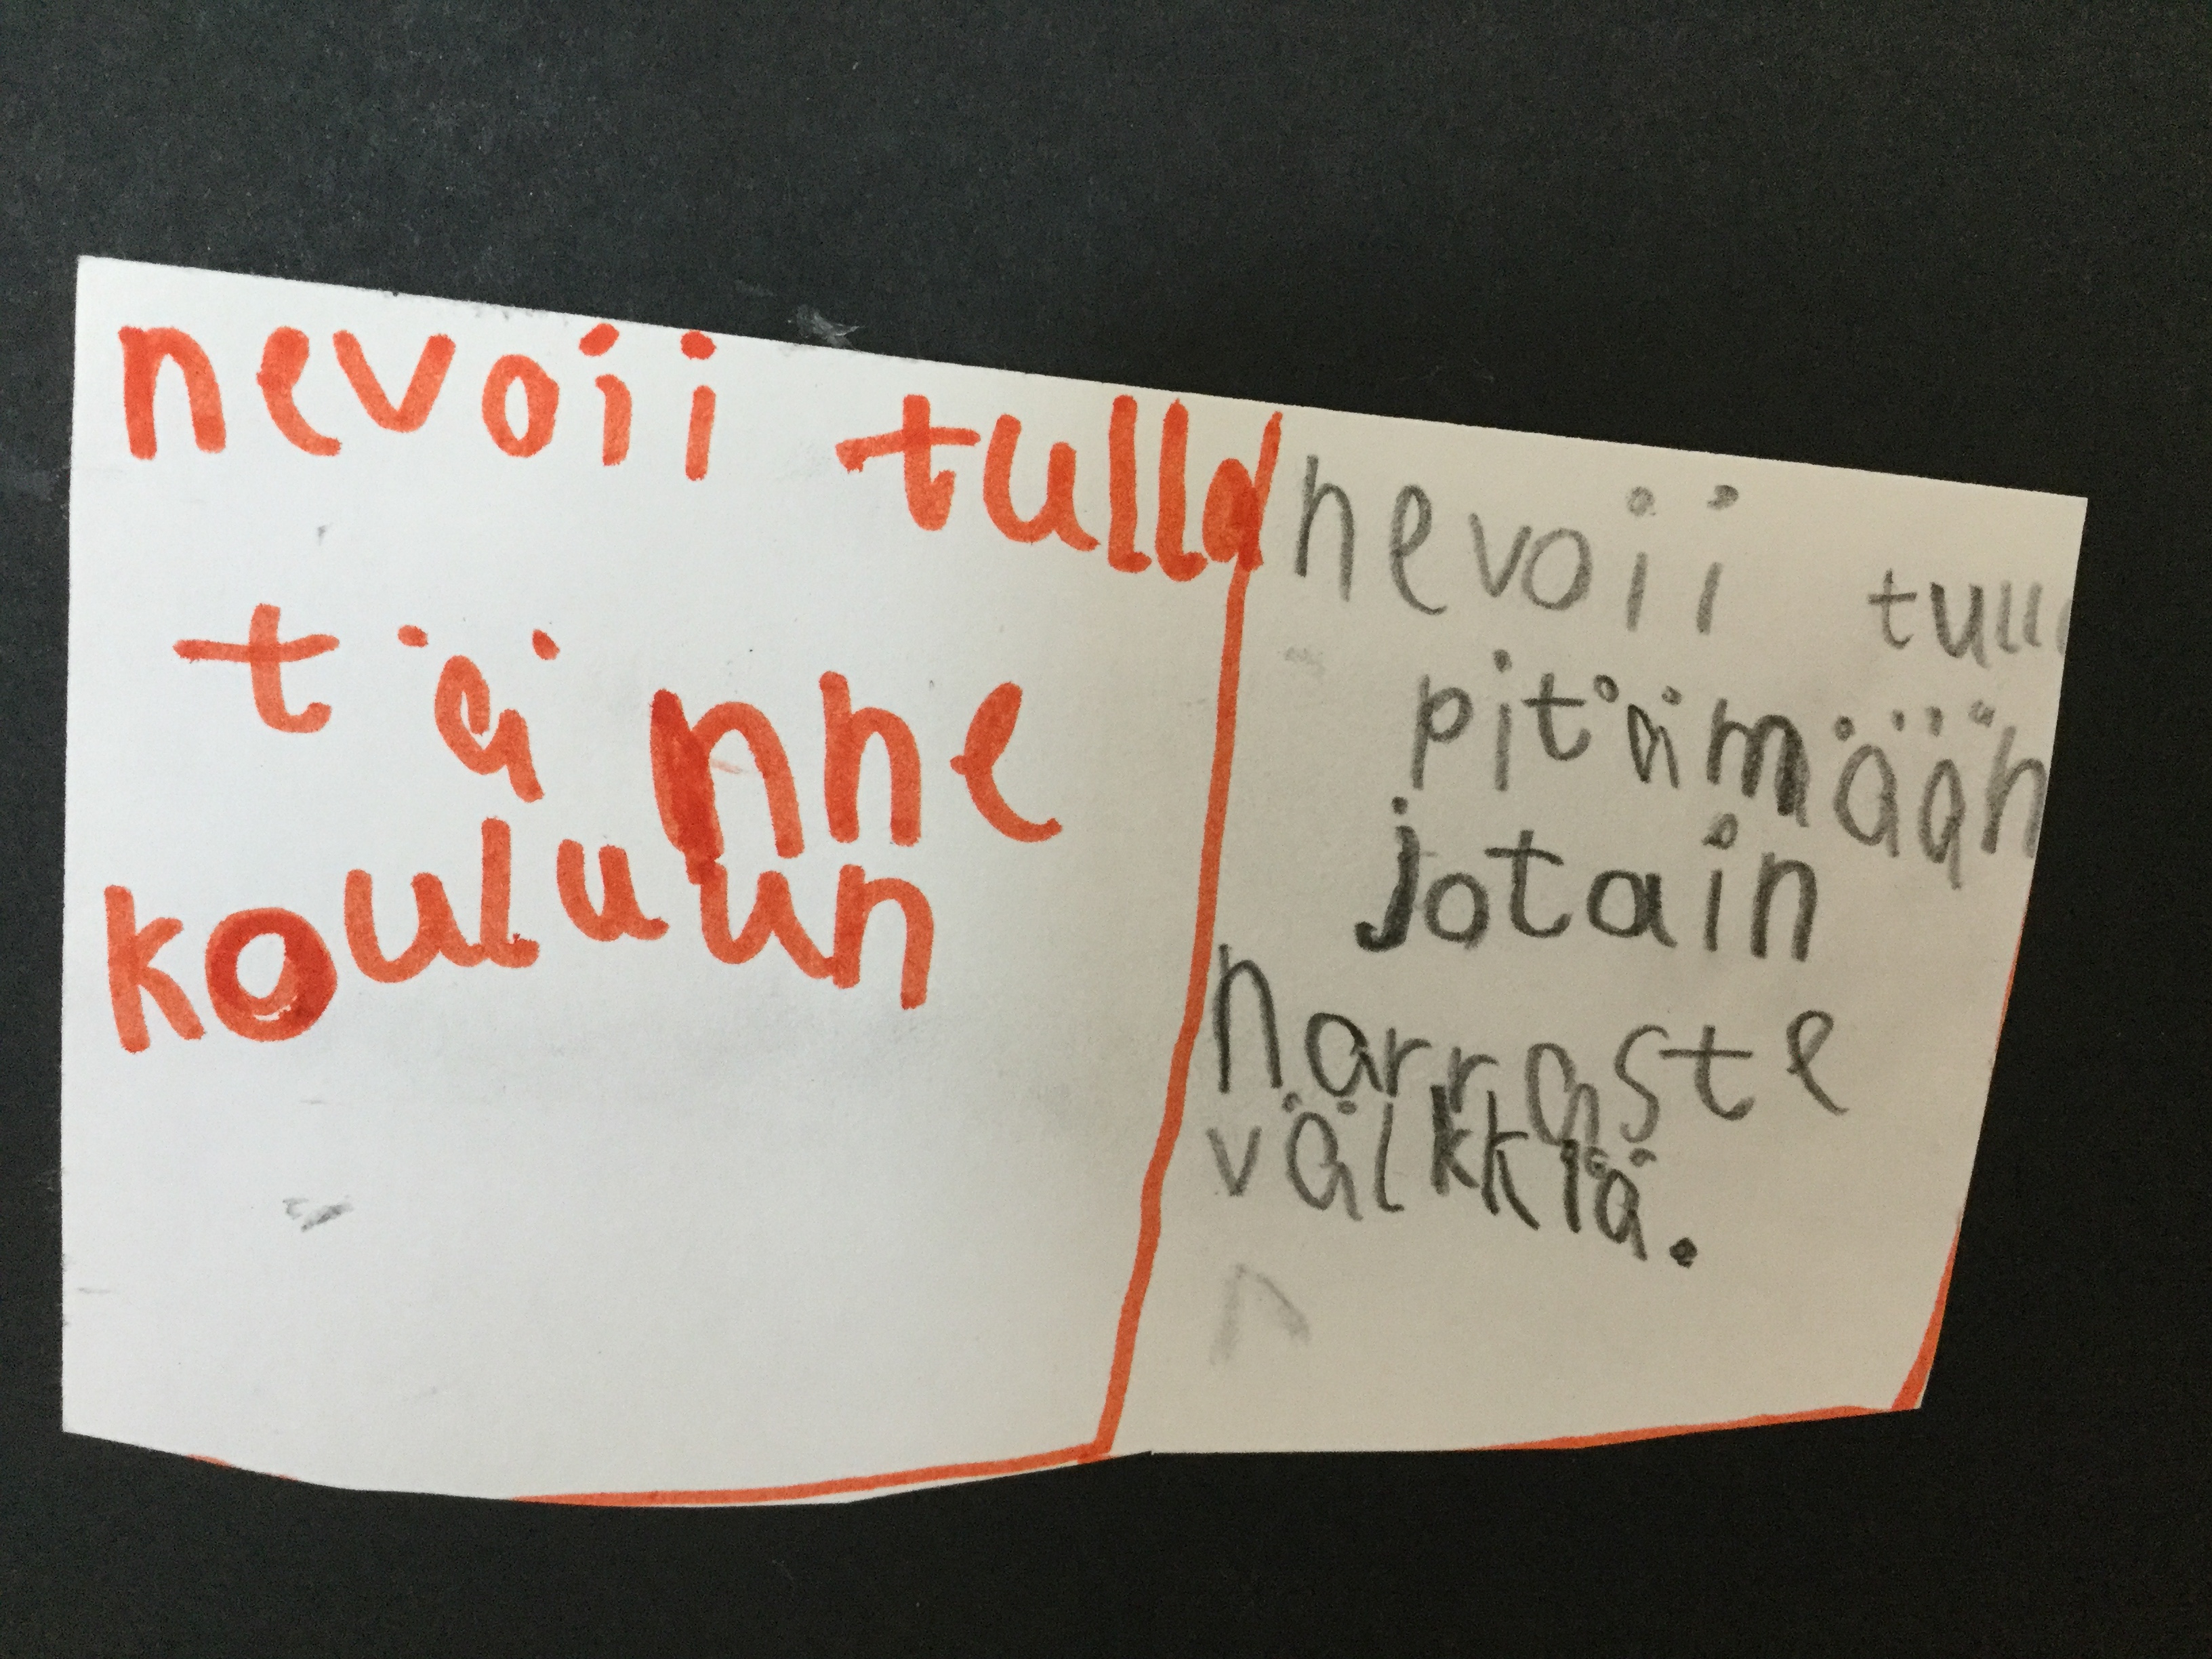 nevoii tulla
tänne
kouluun
nevoii tull
pitämään
jotain
narraste
välkkiä.